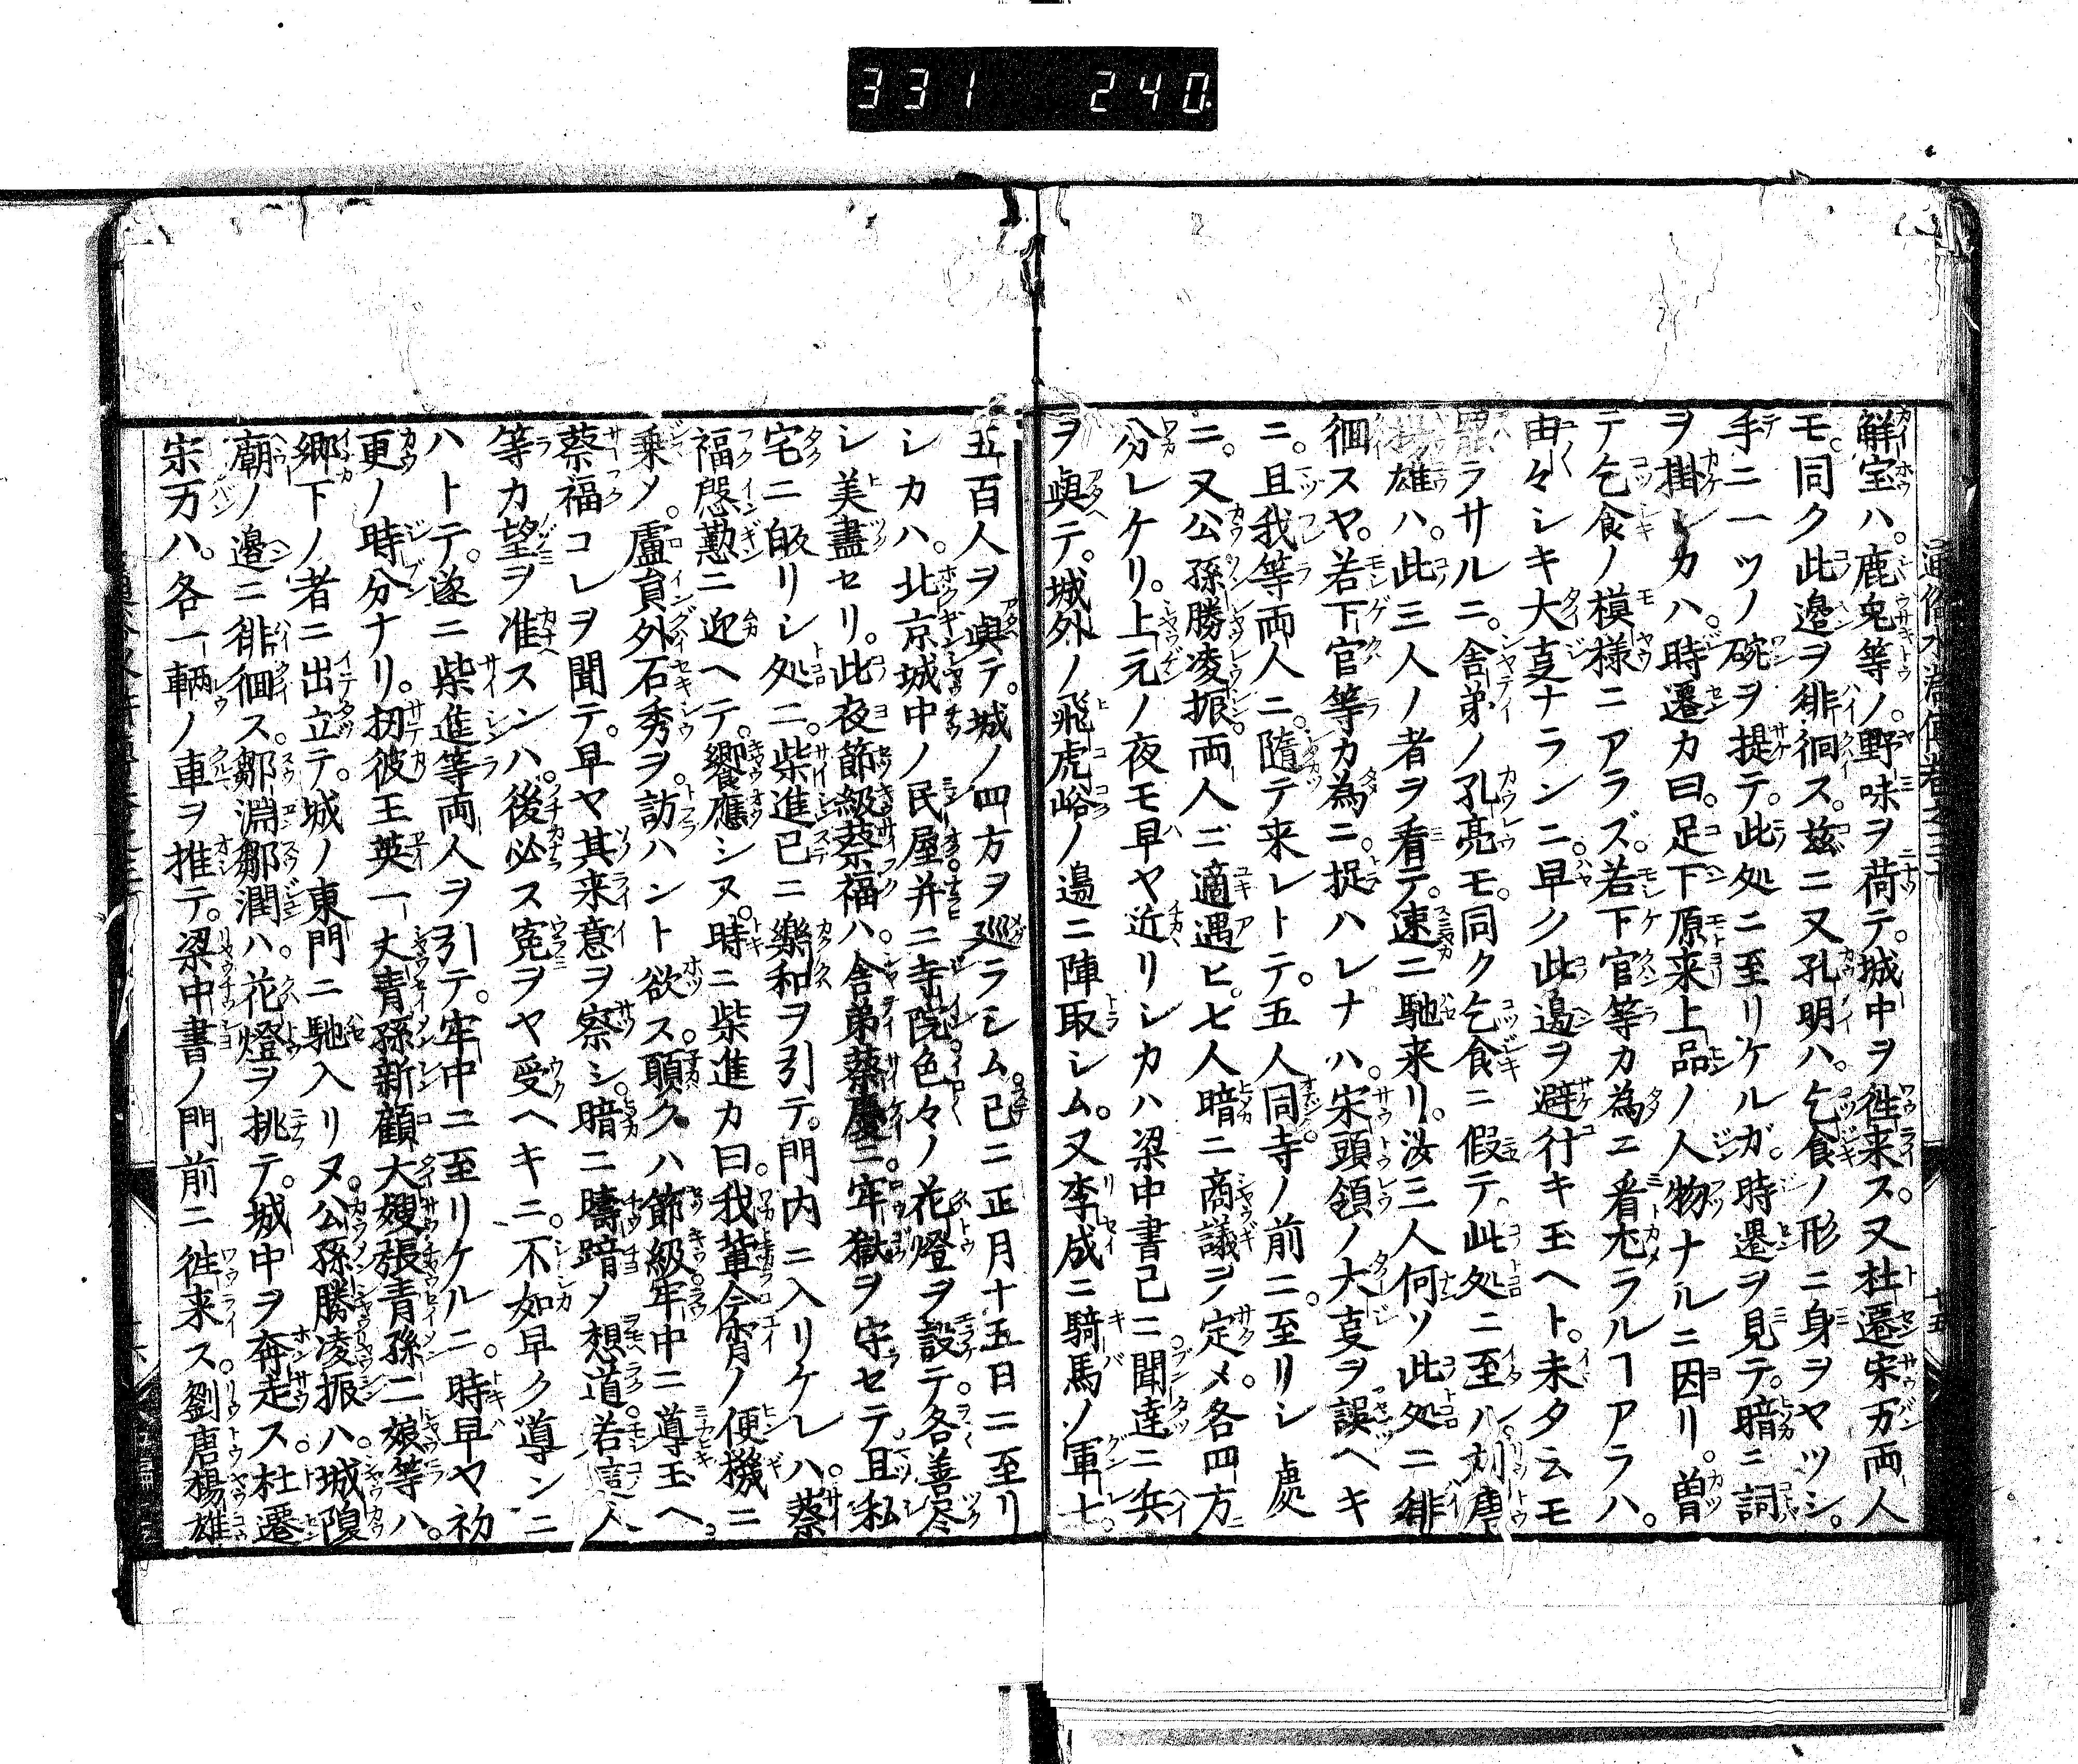 331 240
解宝ハ。鹿兎等ノ。野味ヲ荷テ。城中ヲ徃来ス。又杜遷宋万両人
モ。同ク此邉ヲ徘徊ス。兹ニ又孔明ハ。乞食ノ形ニ身ヲヤツシ。
手ニ一ツノ碗ヲ提テ。此処ニ至リケルガ。時遷ヲ見テ。暗ニ詞
ヲ掛シカハ。時遷カ曰。足下原来上品ノ人物ナルニ因リ。曽
テ乞食ノ模様ニアラズ。若下官等カ為エ看尤ラルヿアラハ。
由々シキ大叓ナランニ。早ク此邉ヲ避行キ玉ヘト。未タ云モ
罷ラサルニ。舎弟ノ孔亮モ。同ク乞食ニ假テ。此処ニ至ハ。刘唐
揚雄ハ。此三人ノ者ヲ看テ。速ニ馳来リ。汝三人何ソ此処ニ徘
徊スヤ。若下官等カ為ニ。捉ハレナハ。宋頭領ノ大叓ヲ誤ヘキ
ニ。且我等両人ニ。隨テ来レトテ。五人同寺ノ前ニ。至リシ處
ニ。又公孫勝凌振。両人ニ適遇ヒ。七人暗ニ商議ヲ定メ。各四方
ニ分レケリ。上元ノ夜モ早ヤ近リシカハ梁中書已ニ聞達ニ兵
ヲ與テ。城外ノ飛虎峪ノ邉ニ陣取シム。又李成ニ騎馬ノ軍士。
五百人ヲ與テ。城ノ四方ヲ廵ラシム。已ニ正月十五日ニ至リ
シカハ。北京城中ノ民屋并ニ寺院色々ノ花燈ヲ設テ。各善尽
シ美盡セリ。此夜節級蔡福ハ。舎弟蔡慶ニ。牢獄ヲ守セテ。且私
宅ニ皈リシ処ニ。柴進已ニ樂和ヲ引テ。門内ニ入リケレハ。蔡
福慇懃ニ迎ヘテ。饗應シヌ。時ニ柴進カ曰。我輩今宵ノ便機ニ
乗メ。盧員外石秀ヲ。訪ハント欲ス。願クハ節級牢中ニ導玉ヘ。
蔡福コレヲ聞テ。早ヤ其来意ヲ察シ。暗ニ躊躇メ想道。若這人
等カ望ヲ准スンハ。後必ス寃ヲヤ受ヘキニ。不如早ク導ンニ
ハトテ。遂ニ柴進等両人ヲ引テ。牢中ニ至リケルニ。時早ヤ初
更ノ時分ナリ。扨彼王英一丈青孫新顧大嫂張青孫二娘等ハ。
郷下ノ者ニ出立テ。城ノ東門ニ馳入リヌ。公孫勝凌振ハ。城隍
廟ノ邉ニ徘徊ス。鄒淵鄒潤ハ。花燈ヲ挑テ。城中ヲ奔走ス。杜遷
宋万ハ。各一輌ノ車ヲ推テ。梁中書ノ門前ニ徃来ス。劉唐楊雄